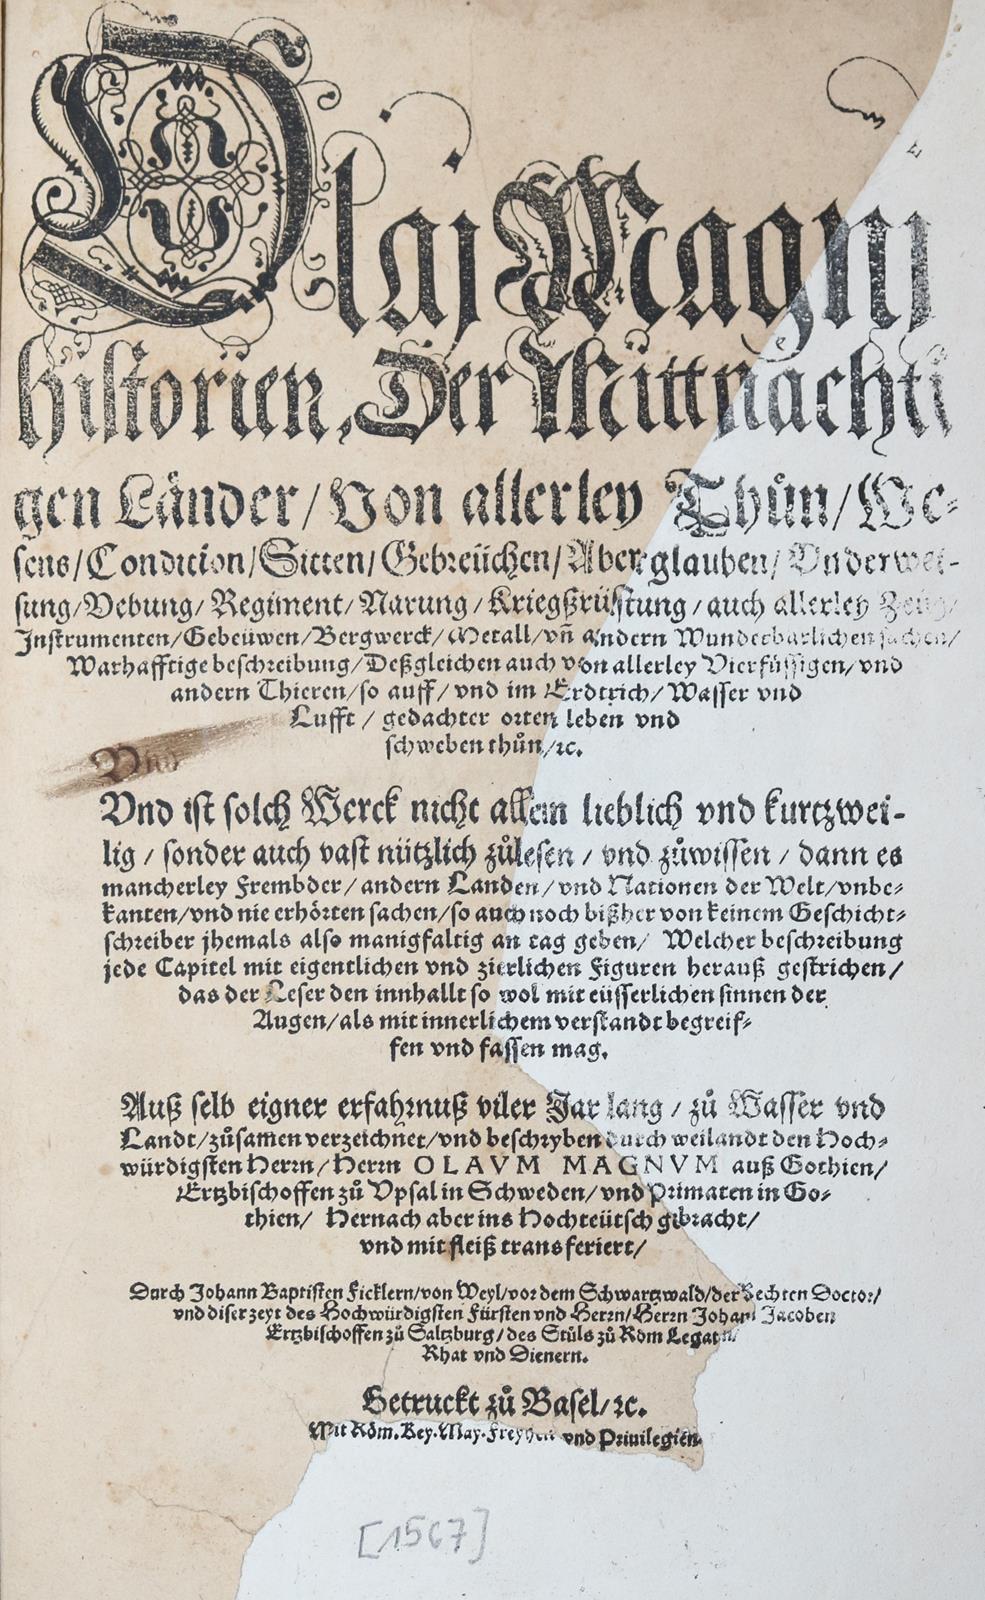 Olaj Magni
Historien, Der Mittnächti
gen Länder/ Von allerley Thůn/ We-
sens/ Condition/ Sitten/ Gebreüchen/ Aberglauben/ Vnderwei-
sung/ Vebung/ Regiment/ Narung/ Kriegßrüstung/ auch allerley Zeüg/
Instrumenten/ Gebeüwen/ Bergwerck/ Metall/ vñ andern Wunderbarlichen sachen/
Warhafftige beschreibung/ Deßgleichen auch von allerley Vierfüssigen/ vnd
andern Thieren/ so auff/ vnd im Erdtrich/ Wasser vnd
Lufft/ gedachter orten leben vnd
schweben thůn/ ꝛc.
Vnd
Vnd ist solch Werck nicht allein lieblich vnd kurtzwei-
lig/ sonder auch vast nützlich zůlesen/ vnd zůwissen/ dann es
mancherley Frembder/ andern Landen/ vnd Nationen der Welt/ vnbe-
kanten/ vnd nie erhörten sachen/ so auch noch bißher von keinem Geschicht-
schreiber jhemals also manigfaltig an tag geben/ Welcher beschreibung
jede Capitel mit eigentlichen vnd zierlichen Figuren herauß gestrichen/
das der Leser den innhallt so wol mit eüsserlichen sinnen der
Augen/ als mit innerlichem verstandt begreif-
fen vnd fassen mag.
Auß selb eigner erfahrnuß viler Jar lang/ zů Wasser vnd
Landt/ zůsamen verzeichnet/ vnd beschryben durch weilandt den Hoch-
würdigsten Herrn/ Herrn OLAVM MAGNVM auß Gothien/
Ertzbischoffen zů Vpsal in Schweden/ vnd Primaten in Go-
thien/ Hernach aber ins Hochteütsch gebracht/
vnd mit fleiß transferiert/
Durch Johann Baptisten Ficklern/ von Weyl/ vor dem Schwartzwald/ der Rechten Doctor/
vnd diser zeyt des Hochwürdigsten Fürsten vnd Herrn/ Herrn Johan Jacoben
Ertzbischoffen zů Saltzburg/ des Stůls zů Rom Legaten/
Rhat vnd Dienern.
Getruckt zů Basel/ ꝛc.
Mit Röm. Key. May. Freyheit vnd Priuilegien
[1567]